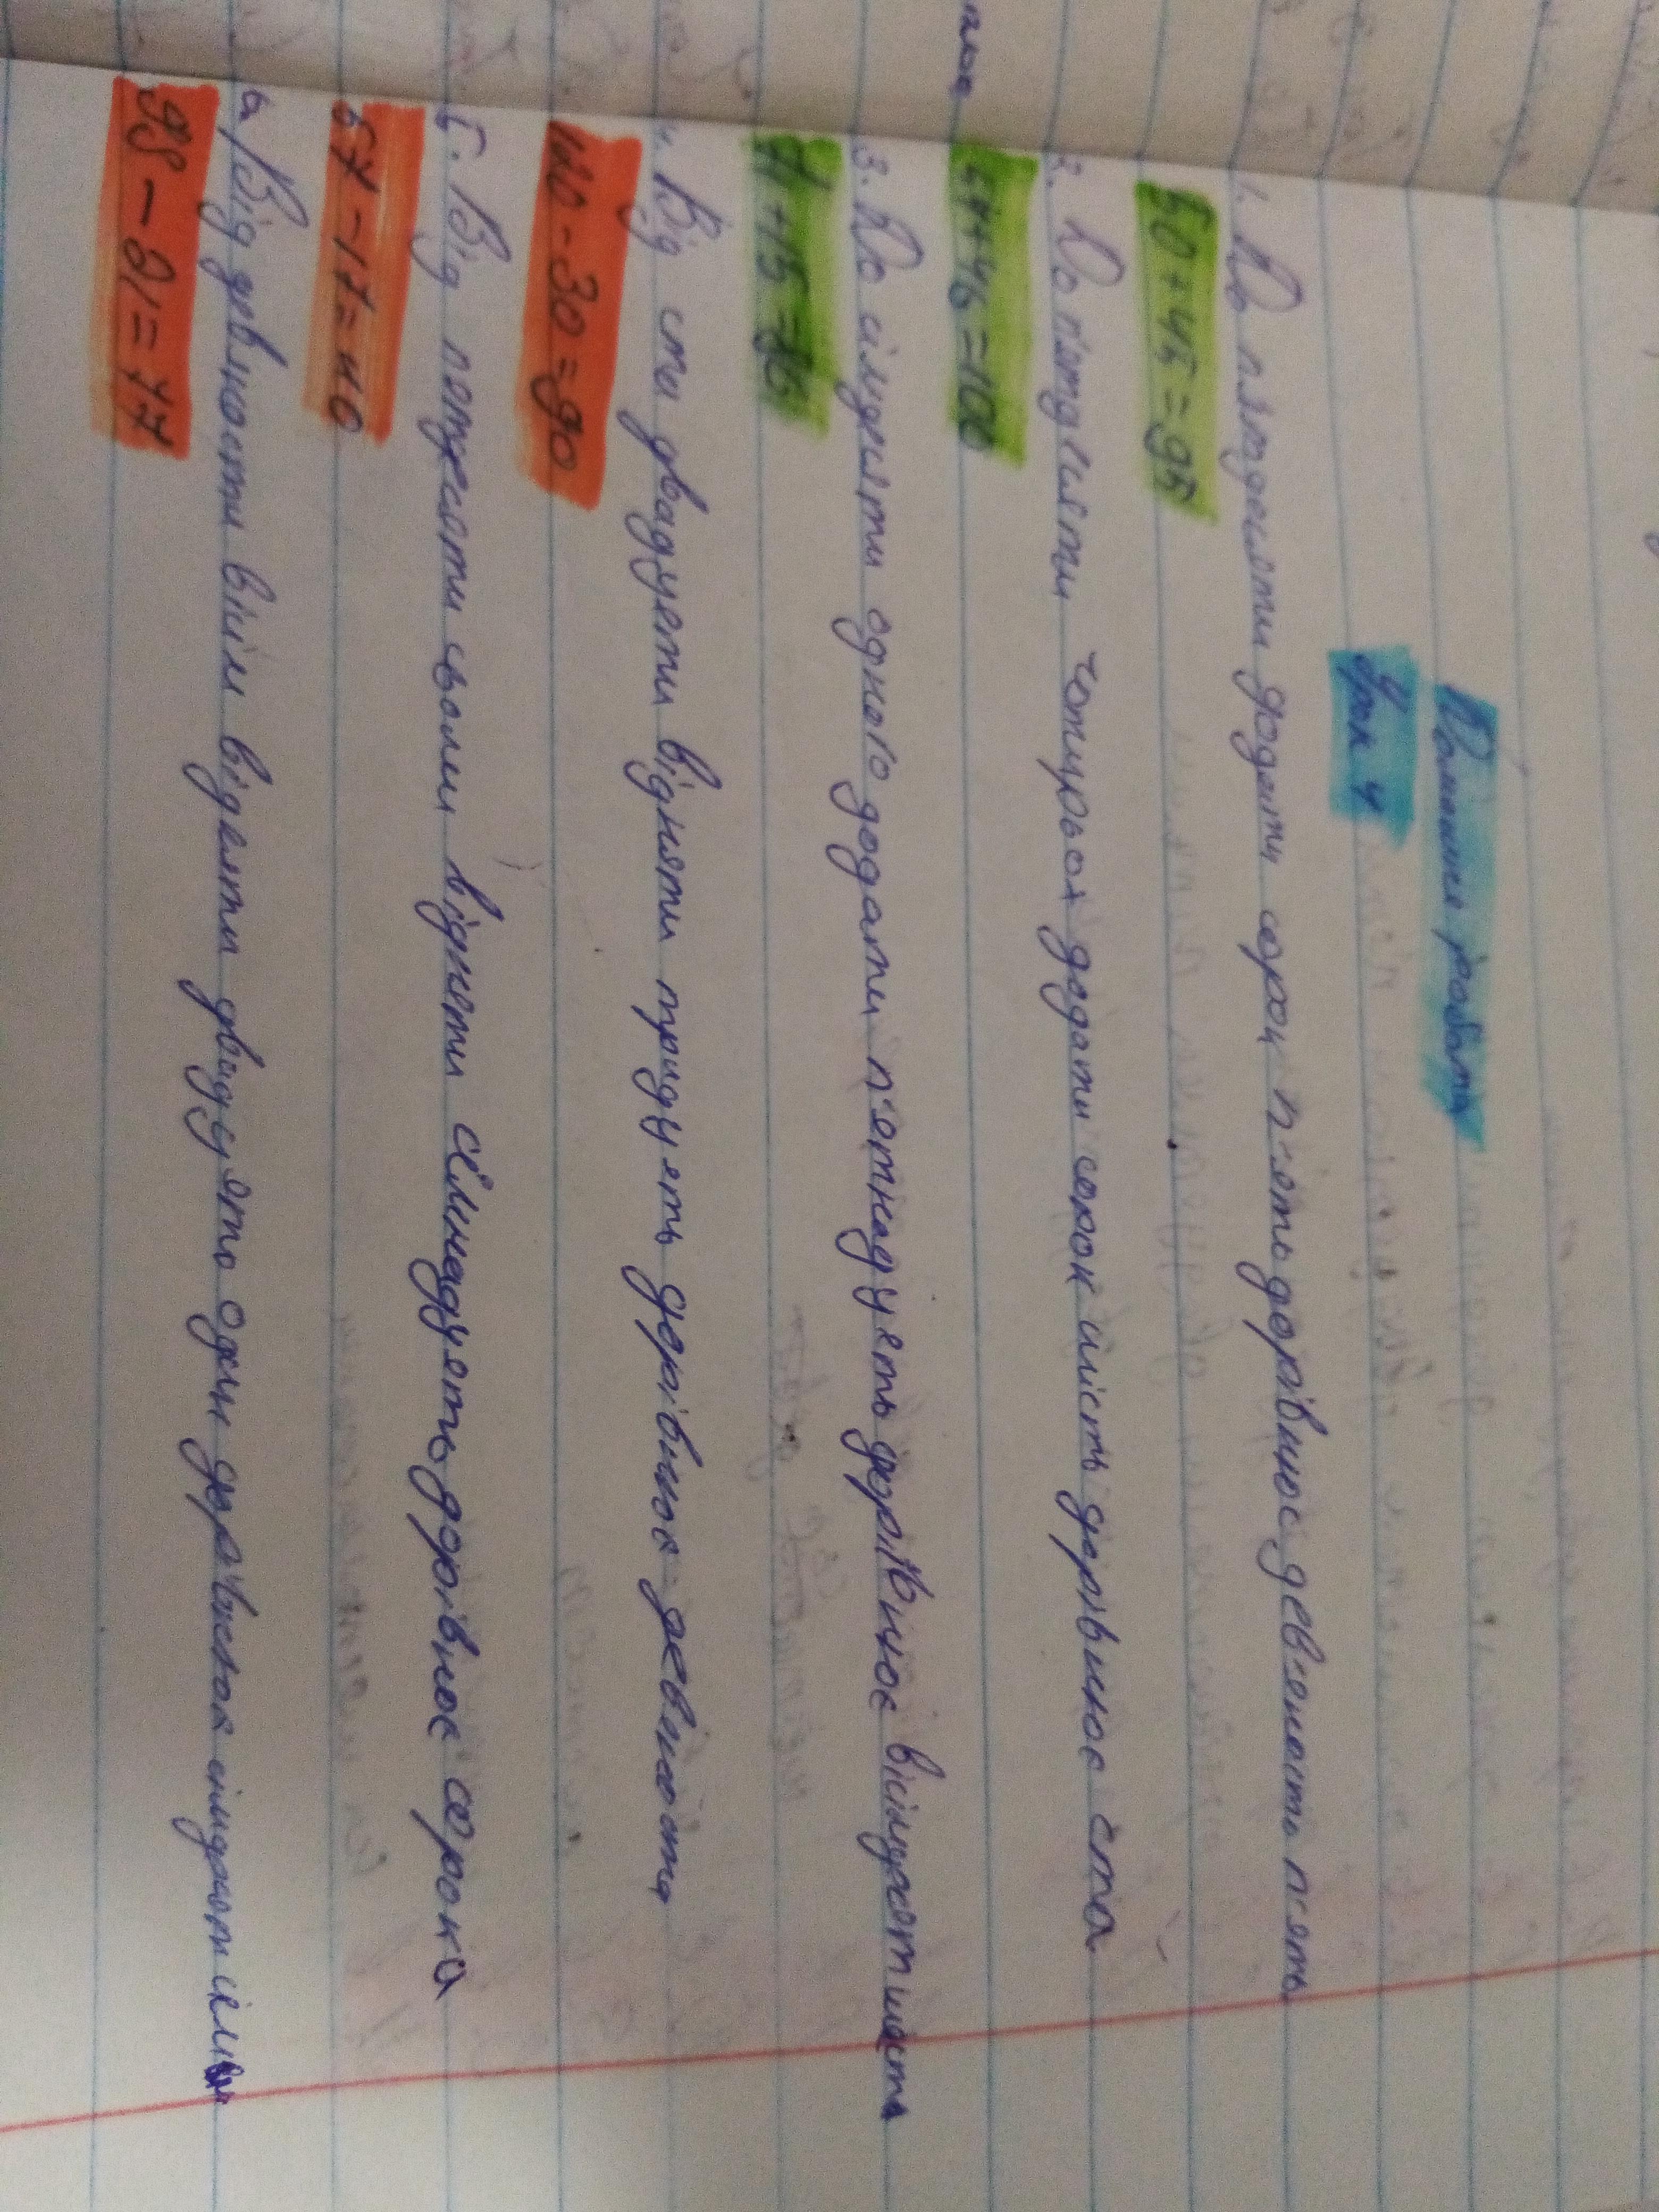 Домашня робота
Урок 4
1. До п'ятдесяти додати сорок п'ять дорівнює дев'яносто п'ять
50+45=95
2. До п'ятдесяти чотирьох додати сорок шість дорівнює ста
54+46=100
3. До сімдесяти одного додати п'ятнадцять дорівнює вісімдесяти шести
71+15=86
4. Від ста двадцяти відняти тридцять дорівнює девяноста
120-30=90
5. Від пятдесяти семи відняти сімнадцять дорівнює сорока
57-17=40
6. Від девяности вісім відняти двадцять один дорівнює сімдесяти семи
98-21=77